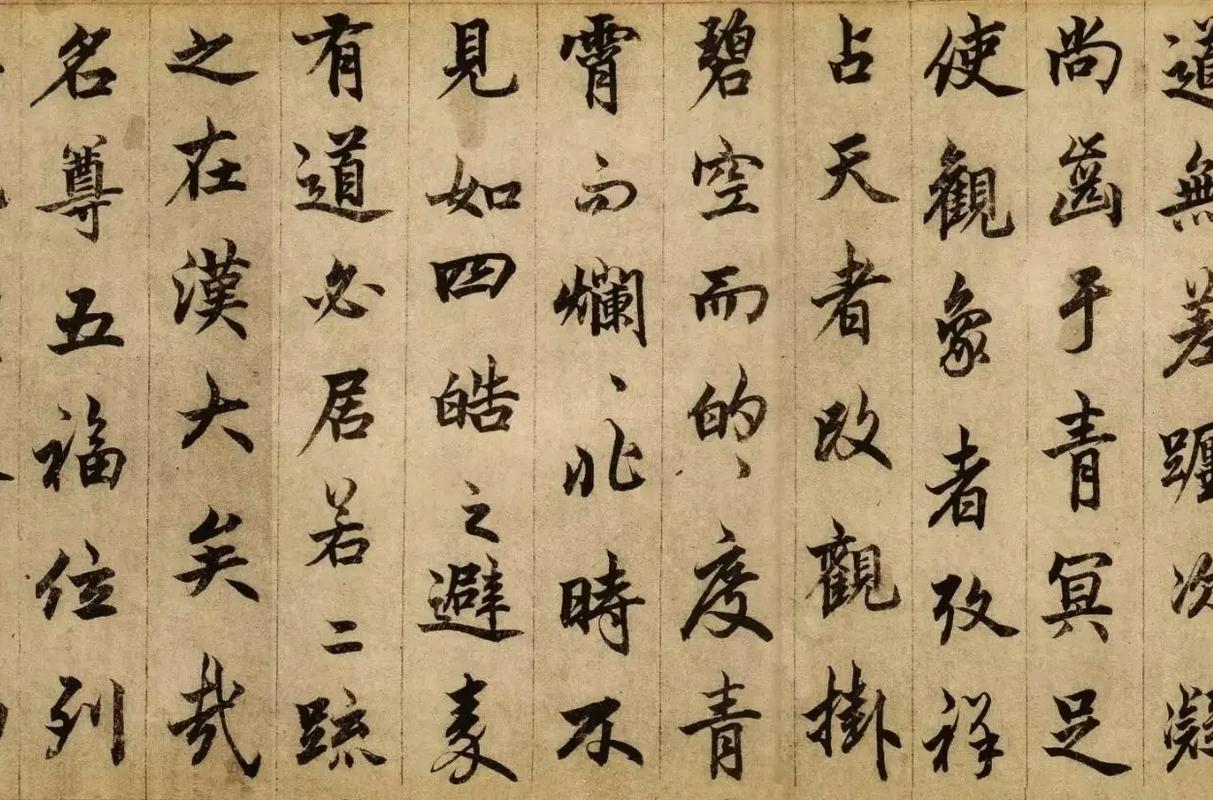 道無差躔次凝
尚齒于青冥足
使觀象者攷祥
占天者改觀掛
碧空而的、度青
霄而爛、非時不
見如四皓之避秦
有道必居若二疏
之在漢大矣哉
名尊五福位列